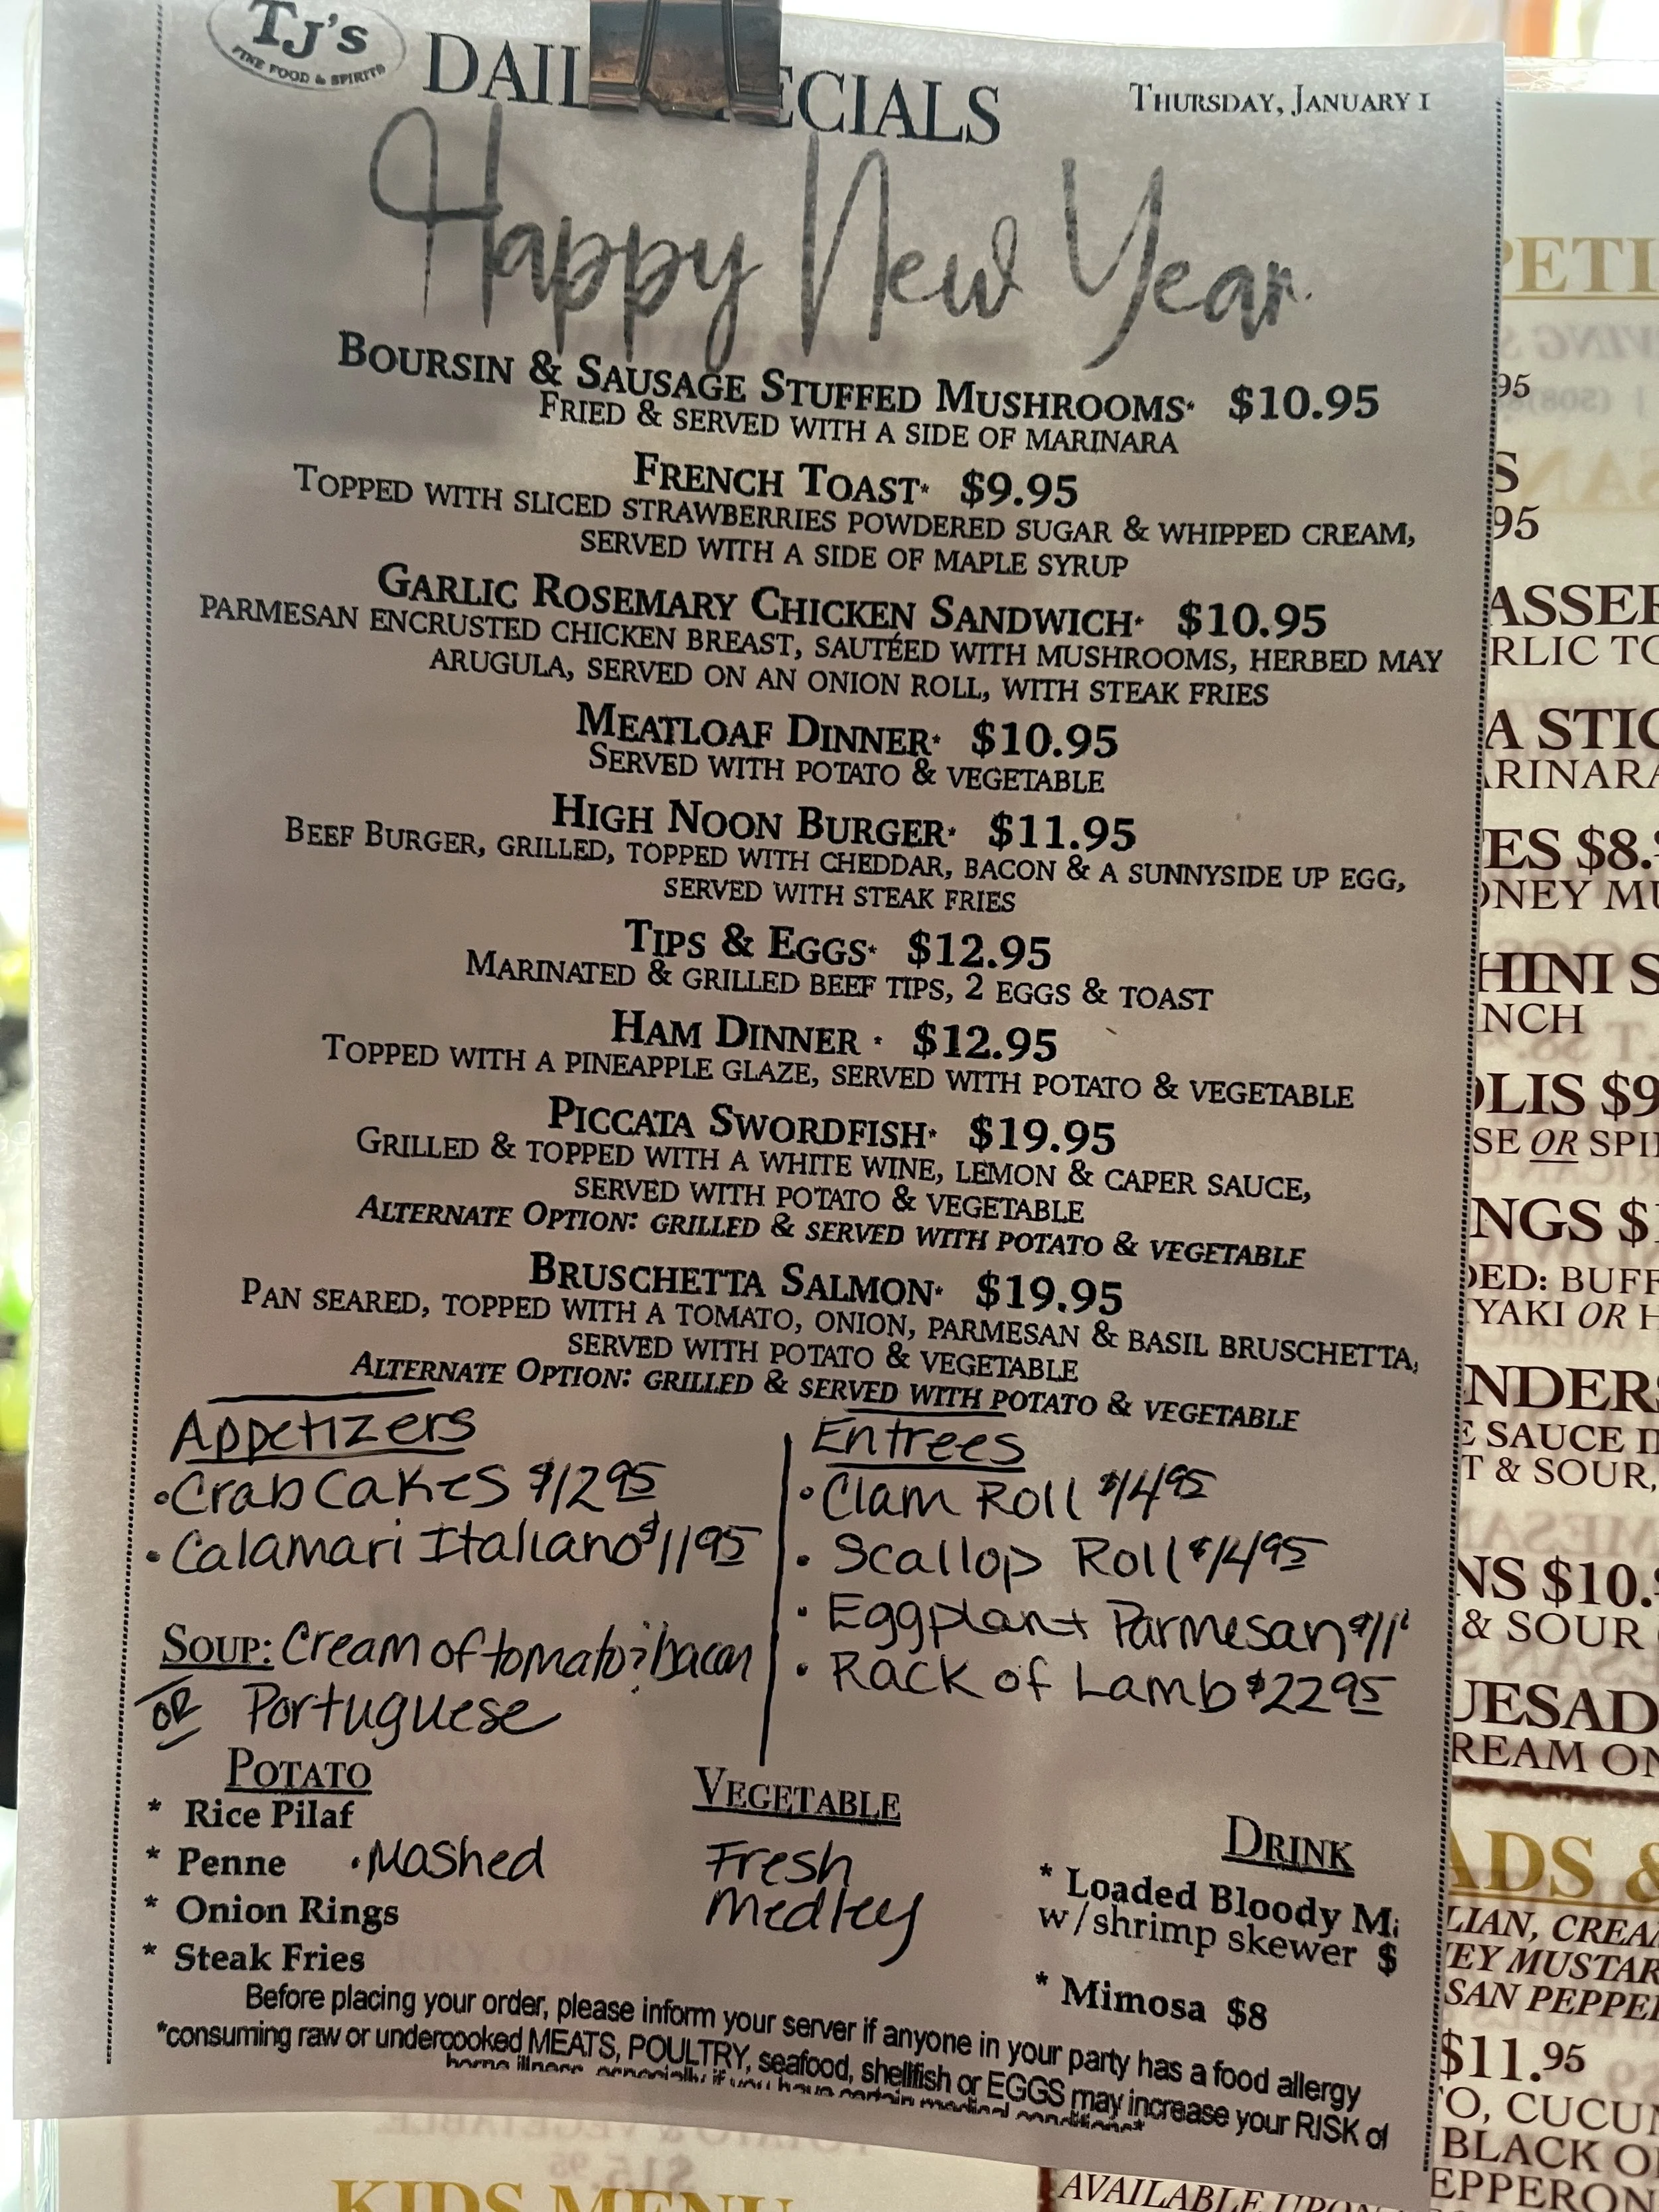 TJ's
FINE FOOD & SPIRITS
DAIL ECIALS
THURSDAY, JANUARY 1
Happy New Year
BOURSIN & SAUSAGE STUFFED MUSHROOMS* $10.95
FRIED & SERVED WITH A SIDE OF MARINARA
FRENCH TOAST* $9.95
TOPPED WITH SLICED STRAWBERRIES POWDERED SUGAR & WHIPPED CREAM,
SERVED WITH A SIDE OF MAPLE SYRUP
GARLIC ROSEMARY CHICKEN SANDWICH* $10.95
PARMESAN ENCRUSTED CHICKEN BREAST, SAUTÉED WITH MUSHROOMS, HERBED MAY
ARUGULA, SERVED ON AN ONION ROLL, WITH STEAK FRIES
MEATLOAF DINNER* $10.95
SERVED WITH POTATO & VEGETABLE
HIGH NOON BURGER* $11.95
BEEF BURGER, GRILLED, TOPPED WITH CHEDDAR, BACON & A SUNNYSIDE UP EGG,
SERVED WITH STEAK FRIES
TIPS & EGGS* $12.95
MARINATED & GRILLED BEEF TIPS, 2 EGGS & TOAST
HAM DINNER * $12.95
TOPPED WITH A PINEAPPLE GLAZE, SERVED WITH POTATO & VEGETABLE
PICCATA SWORDFISH* $19.95
GRILLED & TOPPED WITH A WHITE WINE, LEMON & CAPER SAUCE,
SERVED WITH POTATO & VEGETABLE
ALTERNATE OPTION: GRILLED & SERVED WITH POTATO & VEGETABLE
BRUSCHETTA SALMON* $19.95
PAN SEARED, TOPPED WITH A TOMATO, ONION, PARMESAN & BASIL BRUSCHETTA,
SERVED WITH POTATO & VEGETABLE
ALTERNATE OPTION: GRILLED & SERVED WITH POTATO & VEGETABLE
Appetizers
• Crab Cakes $12 95
• Calamari Italiano $11 95
SOUP: Cream of tomato & bacon
OR Portuguese
Entrees
• Clam Roll $14 95
• Scallop Roll $14 95
• Eggplant Parmesan $11
• Rack of Lamb $22 95
POTATO
* Rice Pilaf
* Penne • Mashed
* Onion Rings
* Steak Fries
VEGETABLE
Fresh
Medley
DRINK
* Loaded Bloody M
w/shrimp skewer $
* Mimosa $8
Before placing your order, please inform your server if anyone in your party has a food allergy
*consuming raw or undercooked MEATS, POULTRY, seafood, shellfish or EGGS may increase your RISK of
borne illness, especially if you have certain medical conditions*
PETI
95
S
95
ASSER
RLIC TO
A STIC
ARINARA
ES $8.
ONEY MU
HINI S
NCH
OLIS $9
SE OR SPI
NGS $1
DED: BUFF
YAKI OR H
NDERS
E SAUCE
T & SOUR,
NS $10.
& SOUR
UESAD
REAM ON
ADS &
LIAN, CREA
EY MUSTAR
SAN PEPPE
$11.95
TO, CUCUM
BLACK O
EPPERON
KIDS MENU
AVAILABLE UPON